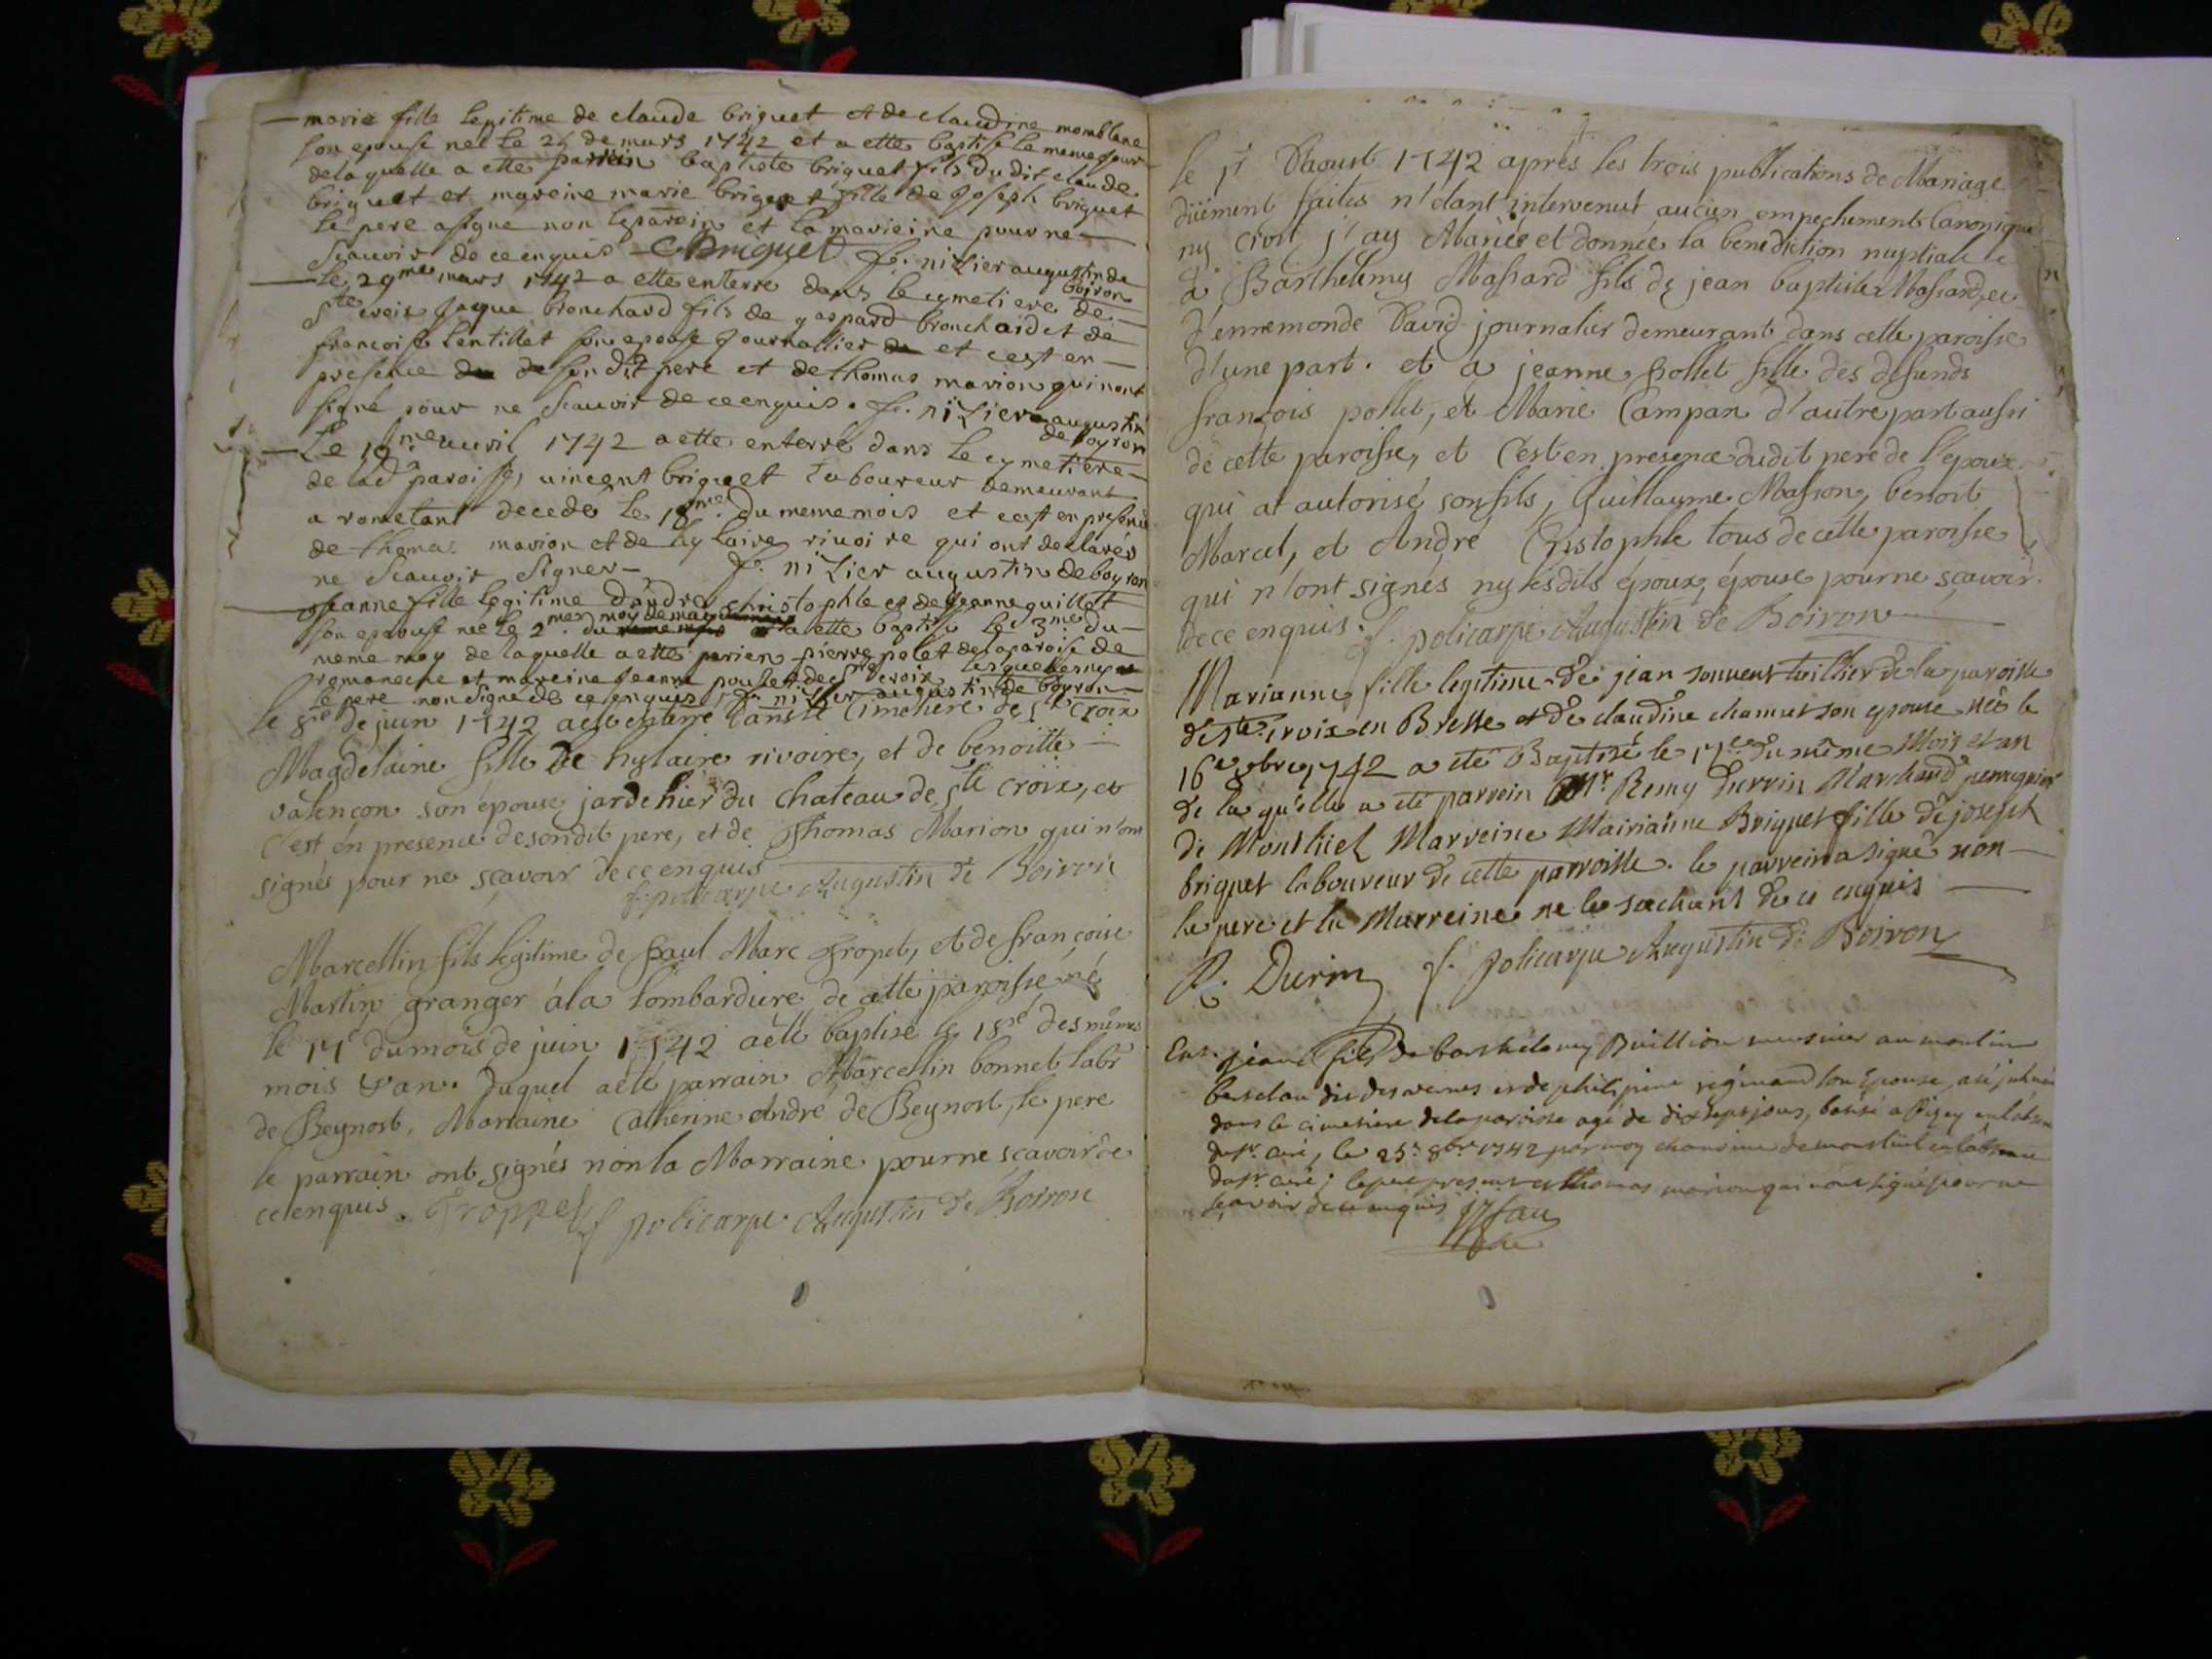 marie fille Legitime de claude briguet et de claudine momblanc
son epouse neé Le 24 de mars 1742 et a ette baptisse Le meme jour
de laquelle a ette parrein baptiste briguet fils du dit claude
briguet et mareine marie briguet fille de Joseph briguet
Le pere a signe non le parein et la marieine pour ne
Scauoir de ce enquis CBriguet fr. niZier augustin de
boiron
Le 29me mars 1742 a ette enterre dans le cymetiere de
Ste croix Jaque bronchard fils de gaspard bronchard et de
francoise Lentillet son epouse Journallier et cest en
presence de son dit pere et de thomas marion qui nont
signé pour ne Scauoir de ce enquis. fr. niZier augustin
de boyron
Le auril 1742 a ette enterré dans Le cymetiere
de lad paroisse, uincent briguet Laboureur demeurant
a rometant decedé Le du meme mois et cest en presence
de thomas marion et de hylaire riuoire qui ont declarés
ne Scauoir Signer fr. niZier augustin de boyron
Jeanne fille legitime dandre christophle et de Jeanne guillet
son epouse neé le 2me du moy de may a ette baptisse le 3me du
meme moy de laquelle a ette parien pierre polet de la paroise de
romaneche et mareine Jeanne poulet de Ste croix
le pere non signé de ce enquis fr. niZier augustin de boyron
le 8me de juin 1742 a eté enterré dans le Cimetiere de Ste Croix
Magdelaine fille De hylaire rivoire, et de benoitte
valençon son épouse jardinier du chateau de Ste Croix, et
C'est én presence de son dit pere, et de Thomas Marion qui n'ont
signés pour ne sçavoir de ce enquis
f. policarpe Augustin de Boiron
Marcellin fils legitime de Paul Marc Tropet, et de françoise
Martin granger á la Lombardiere de cette paroisse né
le 17e du mois de juin 1742 a eté baptisé le 18e des mêmes
mois & an. Duquel a eté parrain Marcellin bonnet labr
de Beynost, Marraine Catherine André de Beynost, le pere
le parrain ont signés non la Marraine pour ne scavoir de
ce enquis. Troppet f policarpe Augustin de Boiron
le Daoust 1742 aprés les trois publications de Mariage
düement faites n'etant intervenut aucun empechement Canonique
ny Civil j'ay Mariée et donnée la benediction nuptiale
a Barthelemy Massard fils de jean baptiste Massard, et
d'ennemonde David journalier demeurant dans cette paroisse
d'une part. et a jeanne Pollet fille des defunds
françois pollet, et Marie Campan d'autre part aussi
de cette paroisse, et C'est en presence dudit pere de l'epoux
qui at autorisé son fils, Guillaume Masson, benoit
Marcel, et André Cristophle tous de cette paroisse
qui n'ont signés ny lesdits époux, épouse pour ne sçavoir
de ce enquis. f. policarpe Augustin de Boiron
Marianne fille legitime de jean souvent tuillier de la paroisse
de Ste Croix en Bresse et de claudine chamet son epouse née le
16e 1742 a eté Baptisé le 17e du même Mois et an
de la qu'elle a eté parrein Mr Remy Durrin Marchand peruquier
de Montluel Marreine Mairianne Briguet fille de joseph
briguet laboureur de cette parroisse. le parrein a signé non
le pere et la Marreine ne le sachant de ce enquis
R. Durin f. policarpe Augustin de Boiron
jeane fils de barthelemy meunier au moulin
et de son Epouse, a été
dans le cimetiere de la paroisse agé de dix Sept jours,
curé, le 25e 8bre 1742 par moy chanoine de montluel en l'absence
du sr curé; le pere present et thomas marion qui n'ont signé pour ne
Sçavoir de ce enquis